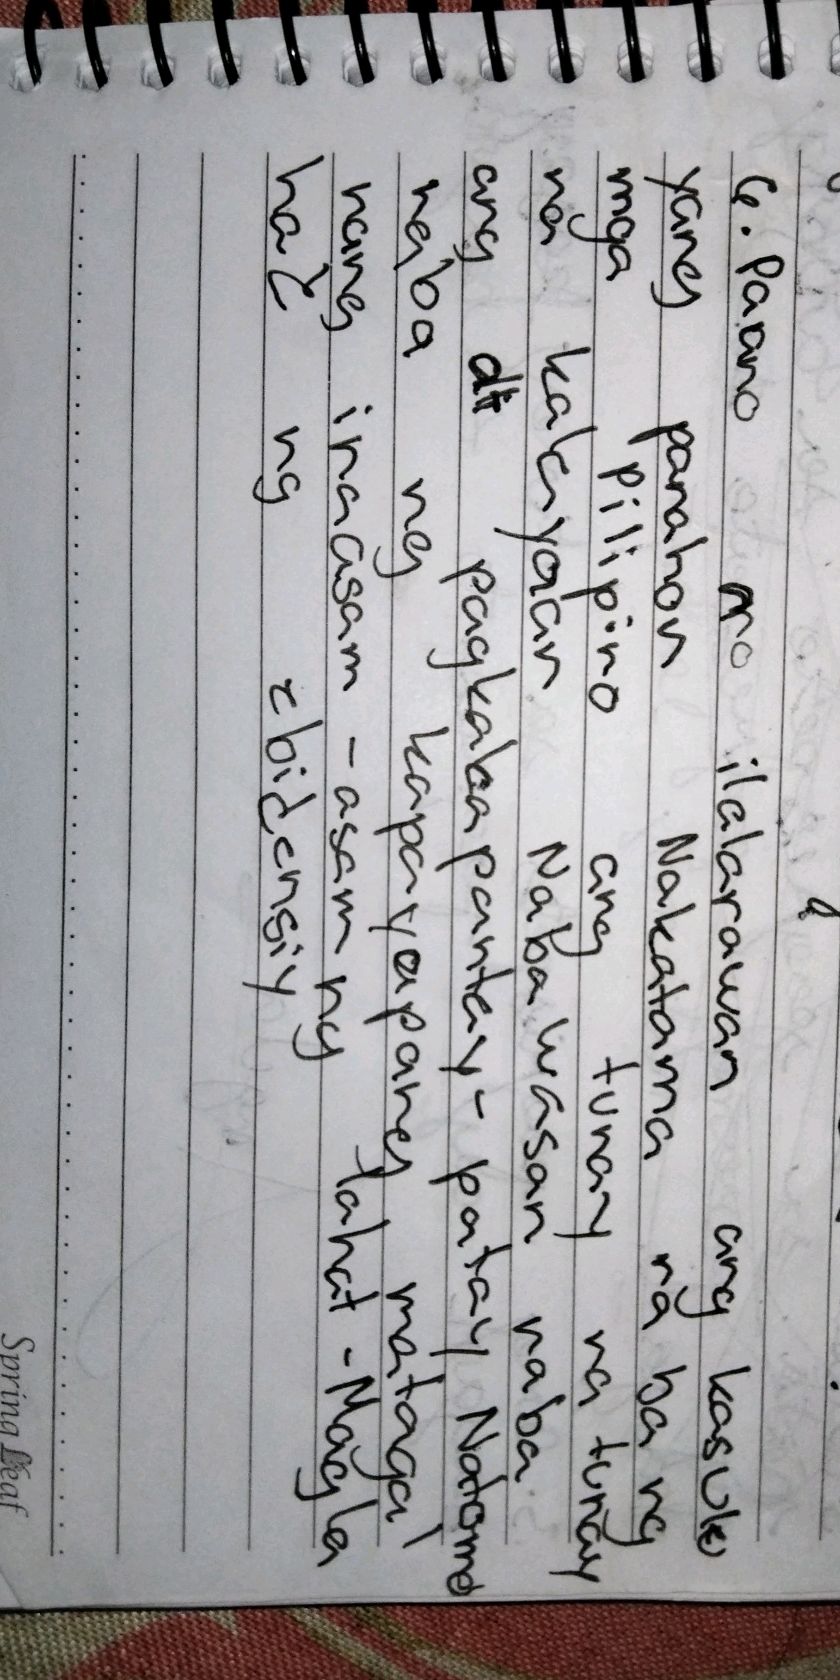 6. Paano mo ilalarawan ang kasuku
yang panahon Nakatama na ba ng
mga pilipino ang tunay na tunay
na kalayaan Nabawasan naba
ang di pagkakapantay-patay Natamo
naba ng kapayapang matagal
nang inaasam-asam ng lahat-Magla
had ng ebidensiy
Spring Leaf